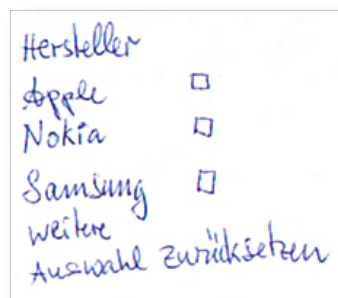 Hersteller
Apple ☐
Nokia ☐
Samsung ☐
weitere
Auswahl zurücksetzen